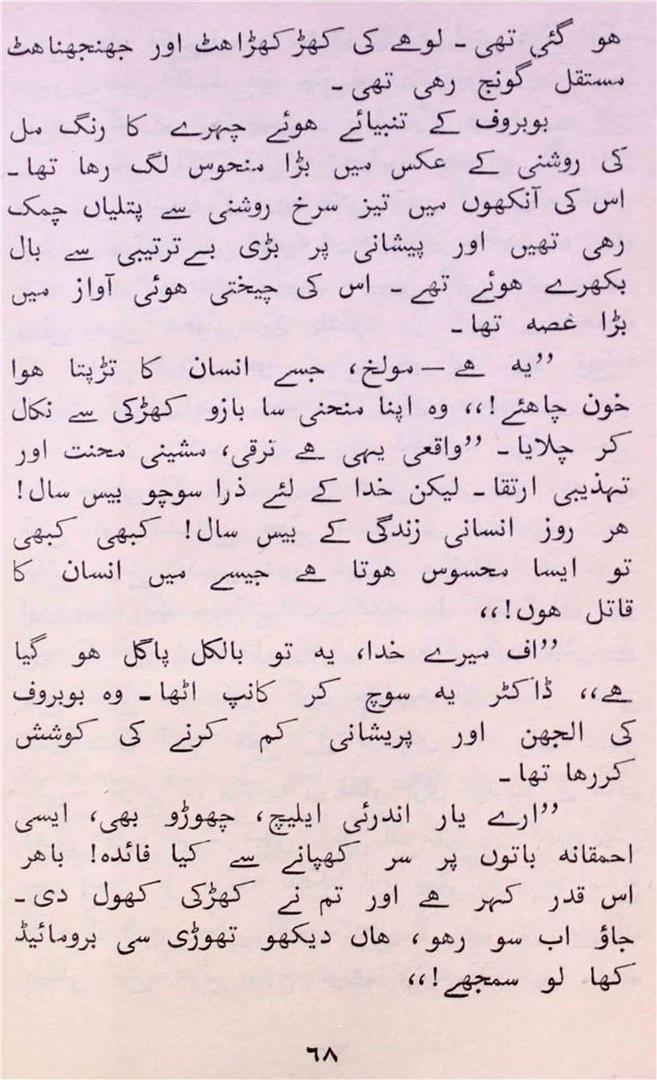 ھو گئی تھی ۔ لوھے کی کھڑکھڑاھٹ اور جھنجھناھٹ
مستقل گونج رھی تھی ۔
بوبروف کے تنبیائے ھوئے چہرے کا رنگ مل
کی روشنی کے عکس میں بڑا منحوس لگ رھا تھا ۔
اس کی آنکھوں میں تیز سرخ روشنی سے پتلیاں چمک
رھی تھیں اور پیشانی پر بڑی بےترتیبی سے بال
بکھرے ھوئے تھے ۔ اس کی چیختی ھوئی آواز میں
بڑا غصہ تھا ۔
”یہ ھے — مولخ، جسے انسان کا تڑپتا ھوا
خون چاھئے!،، وہ اپنا منحنی سا بازو کھڑکی سے نکال
کر چلایا ۔ ”واقعی یہی ھے ترقی، مشینی محنت اور
تہذیبی ارتقا ۔ لیکن خدا کے لئے ذرا سوچو بیس سال!
ھر روز انسانی زندگی کے بیس سال! کبھی کبھی
تو ایسا محسوس ھوتا ھے جیسے میں انسان کا
قاتل ھوں!،،
”اف میرے خدا، یہ تو بالکل پاگل ھو گیا
ھے،، ڈاکٹر یہ سوچ کر کانپ اٹھا ۔ وہ بوبروف
کی الجھن اور پریشانی کم کرنے کی کوشش
کررھا تھا ۔
”ارے یار اندرئی ایلیچ، چھوڑو بھی، ایسی
احمقانہ باتوں پر سر کھپانے سے کیا فائدہ! باھر
اس قدر کہر ھے اور تم نے کھڑکی کھول دی ۔
جاؤ اب سو رھو، ھاں دیکھو تھوڑی سی برومائیڈ
کھا لو سمجھے!،،
٦٨